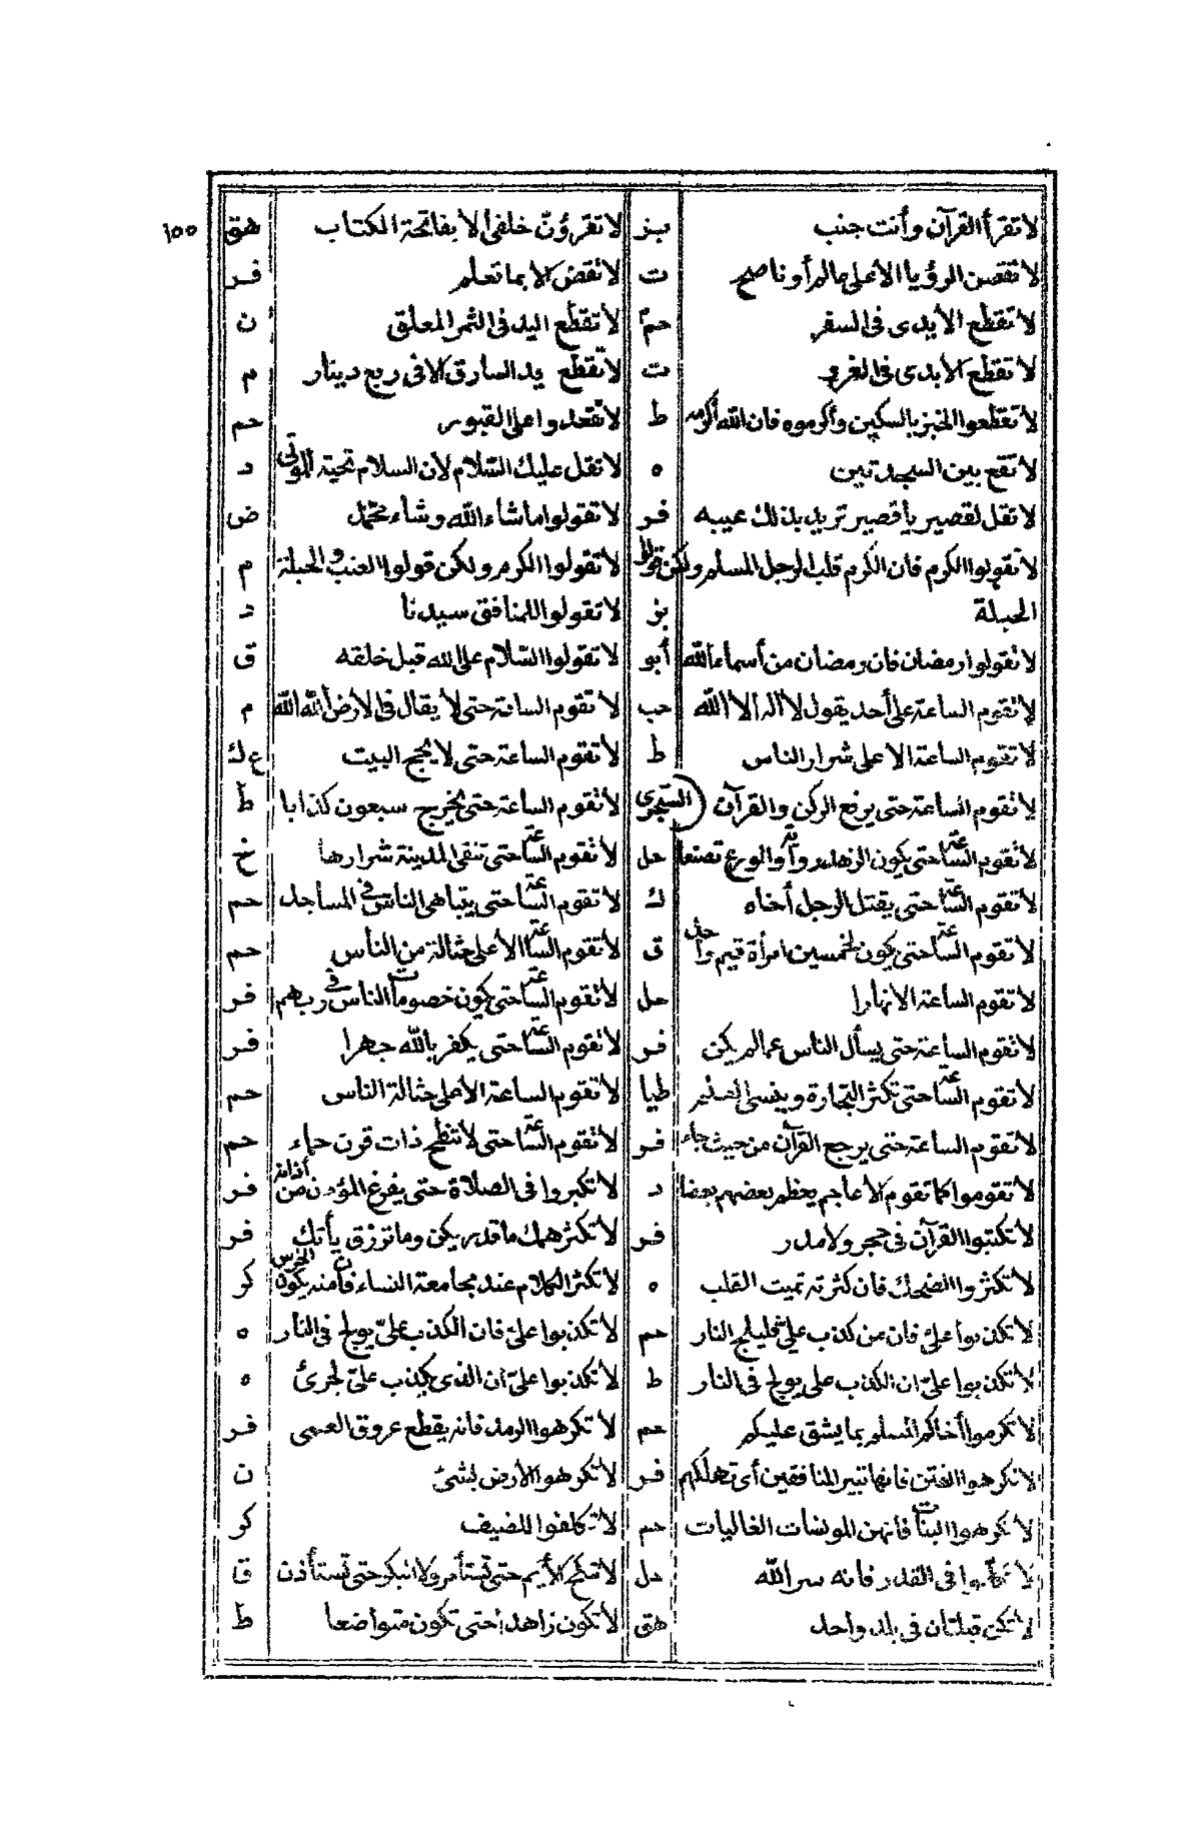 ١٥٥
لا تقرأ القرآن وأنت جنب بز لا تقرؤنّ خلفي إلا بفاتحة الكتاب هق
لا تقصن الرؤيا الا على عالم أو ناصح ت لا تقض إلا بما تعلم فر
لا تقطع الأيدى فى السفر حم لا تقطع اليد فى الثمر المعلق ن
لا تقطع الأيدى فى الغزو ت لا تقطع يد السارق الا فى ربع دينار م
لا تقطعوا الخبز بالسكين وأكرموه فان الله أكرمه ط لا تقعدوا على القبور حم
لا تقع بين السجدتين ه لا تقل عليك السّلام لأن السلام تحية الموتى د
لا تقل لقصير يا قصير تريد بذلك عيبه فر لا تقولوا ما شاء الله وشاء محمّد ض
لا تقولوا الكرم فان الكرم قلب الرجل المسلم ولكن قولوا لا تقولوا الكرم ولكن قولوا العنب والحبلة م
الحبلة بز لا تقولوا للمنافق سيدنا د
لا تقولوا رمضان فان رمضان من أسماء الله أبو لا تقولوا السّلام على الله قبل خلقه ق
لا تقوم الساعة على أحد يقول لا اله الا الله حب لا تقوم الساعة حتى لا يقال فى الأرض الله الله م
لا تقوم الساعة الا على شرار الناس ط لا تقوم الساعة حتى لا يحج البيت ع ك
لا تقوم الساعة حتى يرفع الركن والقرآن (السّجزى لا تقوم الساعة حتى يخرج سبعون كذابا ط
لا تقوم السّاعة حتى يكون الزهد رواية والورع تصنعا حل لا تقوم السّاعة حتى تنقى المدينة شرارها خ
لا تقوم السّاعة حتى يقتل الرجل أخاه ك لا تقوم السّاعة حتى يتباهى الناس فى المساجد حم
لا تقوم السّاعة حتى يكون لخمسين امرأة قيم واحد ق لا تقوم السّاعة الا على حثالة من الناس حم
لا تقوم الساعة الا نهارا حل لا تقوم السّاعة حتى يكون خصومات الناس فى ربهم فر
لا تقوم الساعة حتى يسأل الناس عما لم يكن فر لا تقوم السّاعة حتى يكفر بالله جهرا فر
لا تقوم السّاعة حتى تكثر التجارة و طيا لا تقوم الساعة الا على حثالة الناس حم
لا تقوم الساعة حتى يرجع القرآن من حيث جاء فر لا تقوم السّاعة حتى لا تنطح ذات قرن جماء حم
لا تقوموا كما تقوم الأعاجم يعظم بعضهم بعضا د لا تكبروا فى الصلاة حتى يفرغ المؤذن من أذانه فر
لا تكتبوا القرآن فى حجر ولا مدر فر لا تكثر همك ما قدر يكن وما ترزق يأتك فر
لا تكثروا الضحك فان كثرته تميت القلب ه لا تكثر الكلام عند مجامعة النساء فان منه يكون الخرس كو
لا تكذبوا علىّ فان من كذب علىّ فليلج النار حم لا تكذبوا علىّ فان الكذب علىّ يولج فى النار ه
لا تكذبوا علىّ ان الكذب على يولج فى النار ط لا تكذبوا علىّ ان الذى يكذب علىّ لجرئ ه
لا تكرموا أخاكم المسلم بما يشق عليكم حم لا تكرهوا الرمد فانه يقطع عروق العمى فر
لا تكرهوا الفتن فانها تبير المنافقين أى تهلكهم فر لا تكرهوا الأرض بشئ ن
لا تكرهوا البنات فانهن المونسات الغاليات حم لا تكلفوا للضيف كو
لا تكلموا فى القدر فانه سر الله حل لا تنكح الأيم حتى تستأمر ولا البكر حتى تستأذن ق
لا تكن قبلتان فى بلد واحد هق لا تكون زاهدا حتى تكون متواضعا ط